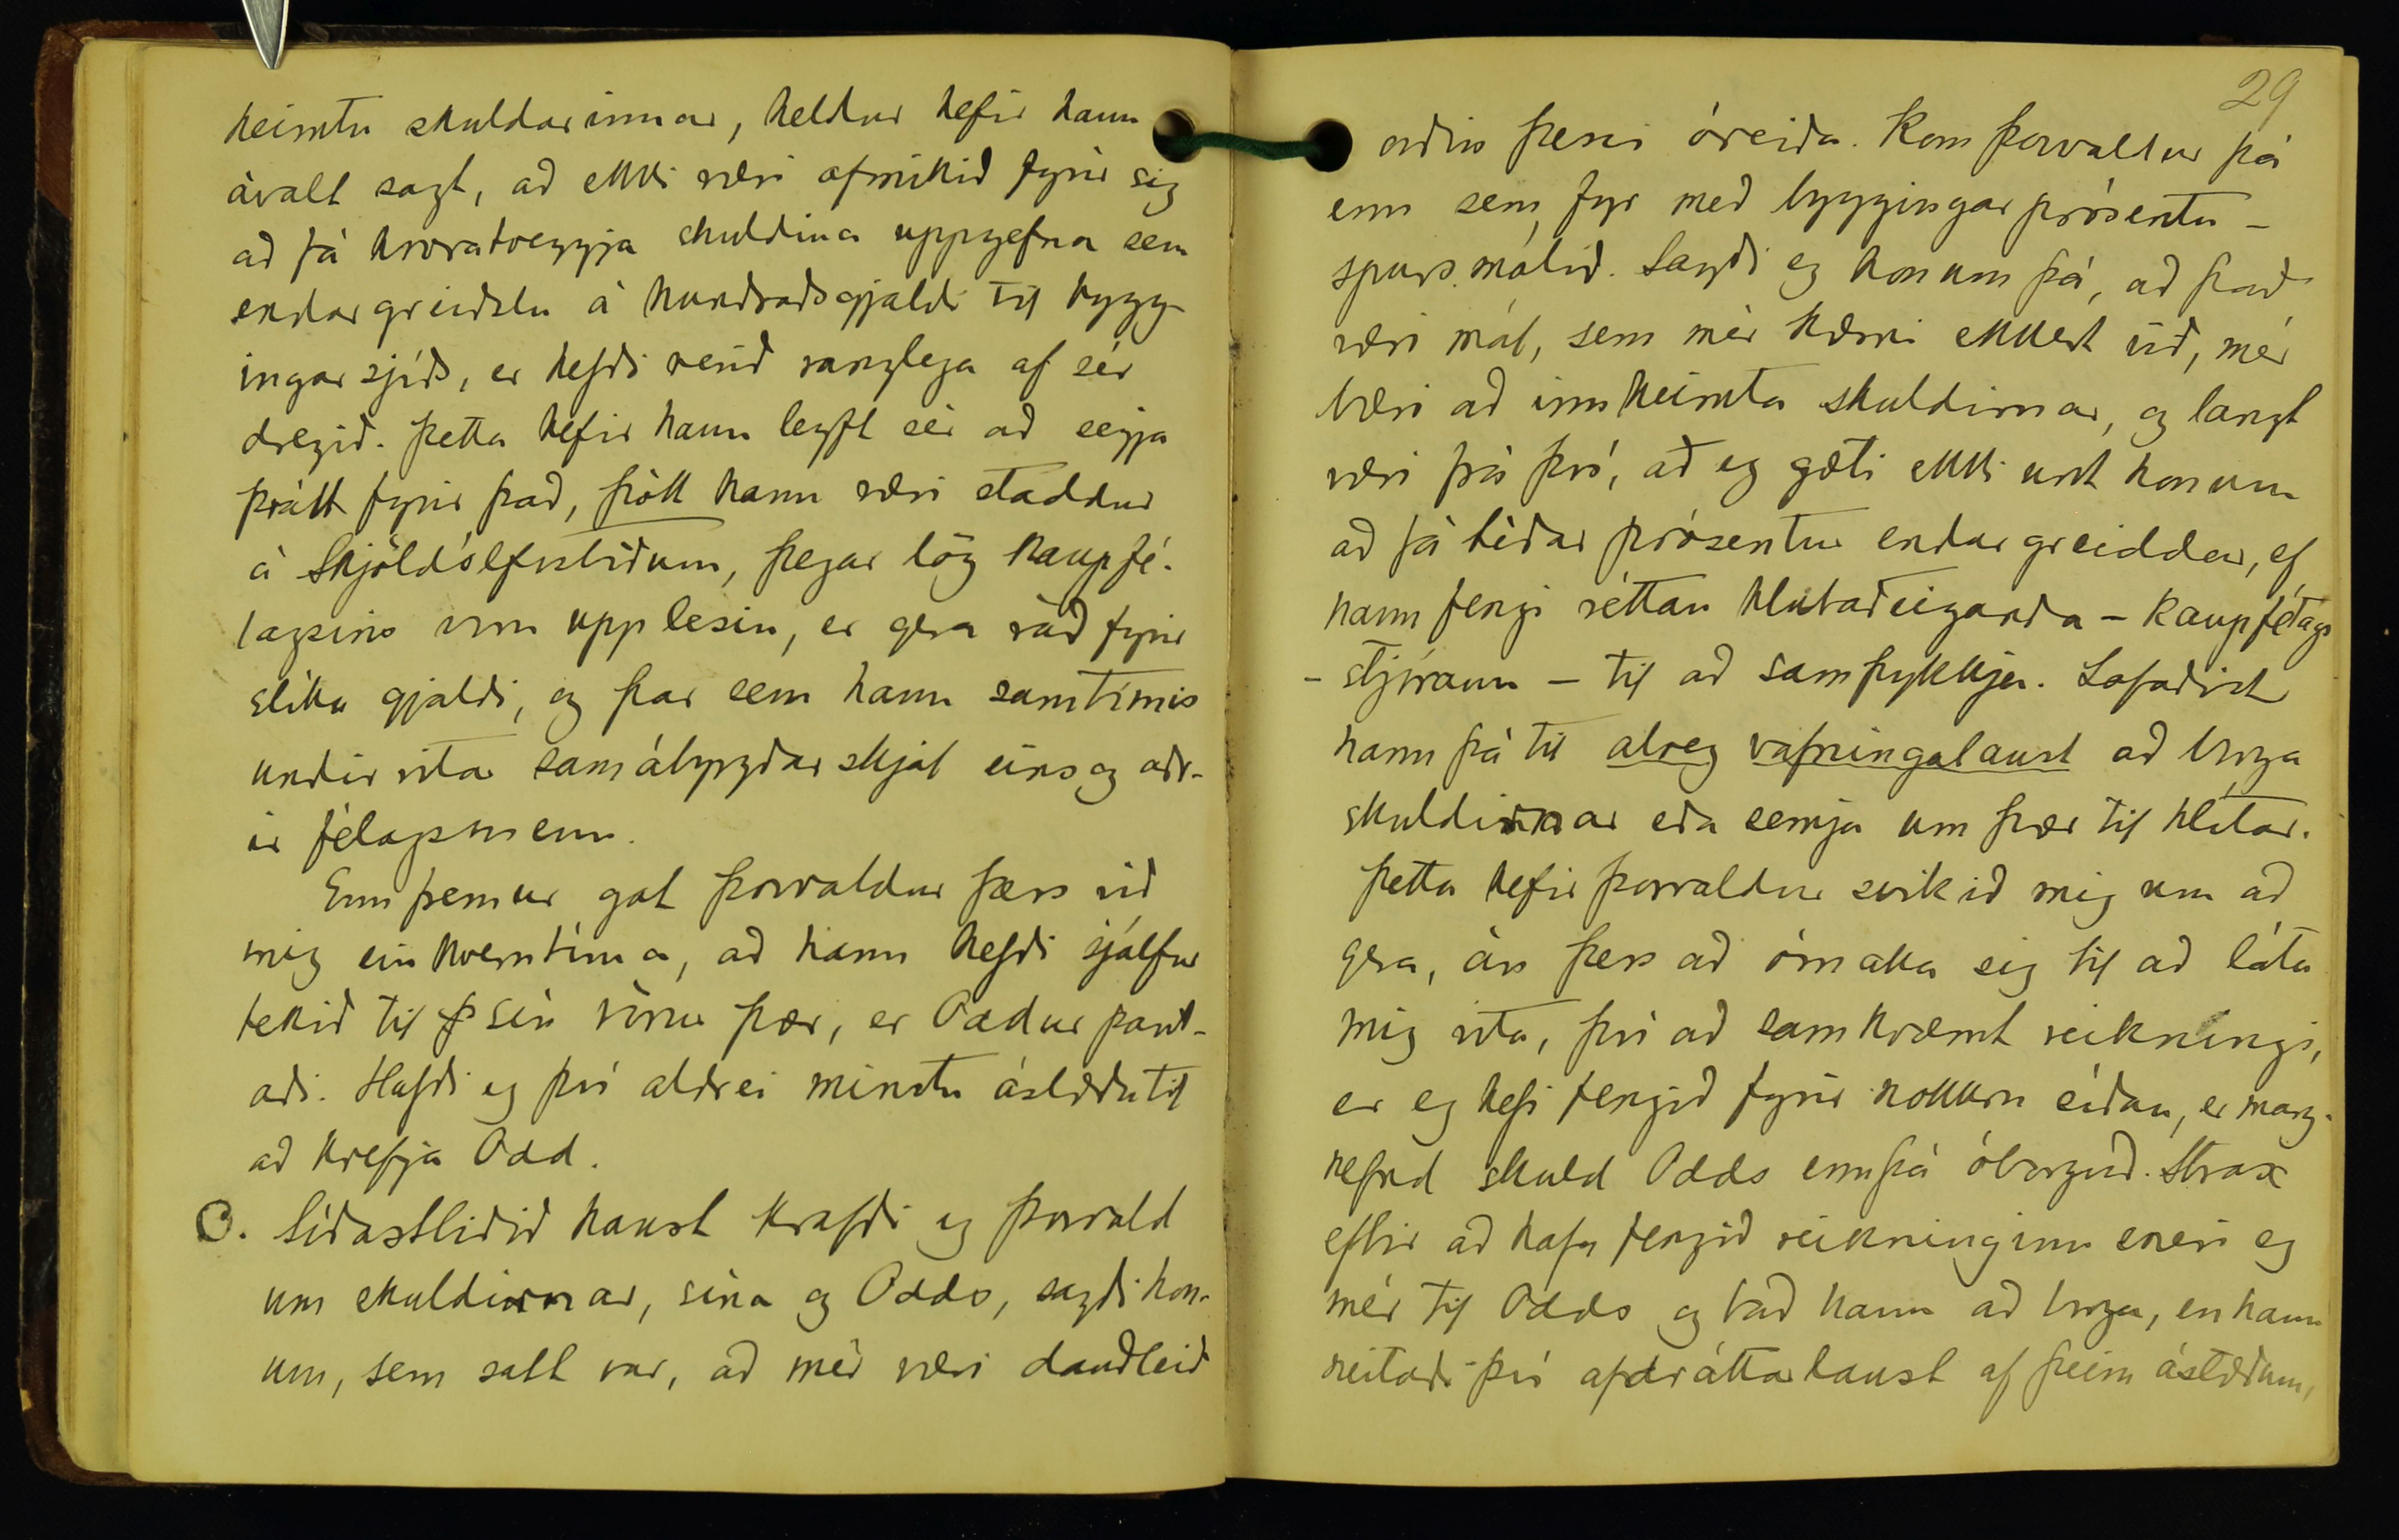 heimtu skuldarinnar, heldur hefir hann
ávalt sagt, að ekki væri ofmikið fyrir sig
að fá hvoratveggja skuldina uppgefna sem
endurgreiðslu á hundraðsgjaldi til bygg-
ingarsjóðs, er hefði verið ranglega af sér
dregið. Þetta hefir hann leyft sér að segja
þrátt fyrir það, þótt hann væri staddur
á Skjöldólfsstöðum, þegar lög kaupfé-
lagsins vóru upplesin, er gera ráð fyrir
slíku gjaldi, og þar sem hann samtímis
undirritar samábyrgðarskjal eins og aðr-
ir félagsmenn.
Ennfremur gat Þorvaldur þess við
mig einhverntíma, að hann hefði sjálfur
tekið til sín vörur þær, er Oddur pant-
aði. Hafði eg því aldrei minstu ástæðu til
að krefja Odd.
C. Síðastliðið haust krafði eg Þorvald
um skuldirnar, sína og Odds, sagði hon-
um, sem satt var, að mér væri dauðleið
29
orðin þessi óreiða. Kom Þorvaldur þá
enn sem fyr með byggingarprósentu-
spursmálið. Sagði eg honum þá, að það
væri mál, sem mér kæmi ekkert við, mér
bæri að innheimta skuldirnar, og langt
væri frá því, að eg gæti ekki unt honum
að fá téðar prósentur endurgreiddar, ef
hann fengi réttan hlutaðeiganda - Kaupfélags
- stjórann - til að samþykkja. Lofaðist
hann þá til alveg vafningalaust að borga
skuldirnar eða semja um þær til hlítar.
Þetta hefir Þorvaldur svikið mig um að
gera, án þess að ómaka sig til að láta
mig vita, því að samkvæmt reikningi,
er eg hefi fengið fyrir nokkru síðan, er marg-
nefnd skuld Odds ennþá óborguð. Strax
eftir að hafa fengið reikninginn sneri eg
mér til Odds og bað hann að borga, en hann
neitaði því afdráttarlaust af þeim ástæðum,